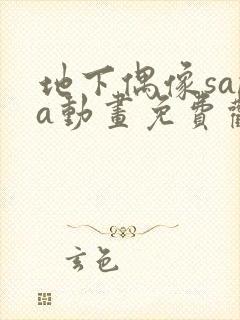 地下偶像sa
a動畫免費
玄色